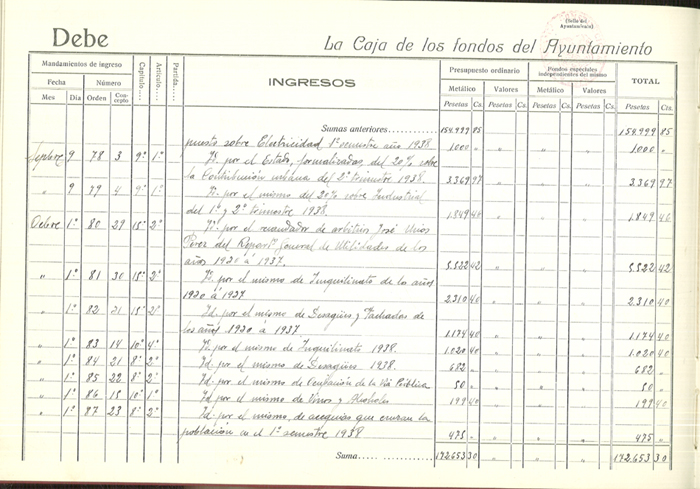 (Sello del Ayuntamiento)
Debe
La Caja de los fondos del Ayuntamiento
Mandamientos de ingreso
Capítulo
Artículo
Partida
INGRESOS
Presupuesto ordinario
Fondos especiales independientes del mismo
TOTAL
Fecha Número
Metálico Valores Metálico Valores
Mes Día Orden Concepto
Pesetas Cs. Pesetas Cs. Pesetas Cs. Pesetas Cs. Pesetas Cts.
Sumas anteriores 154.999 85 154.999 85
puesto sobre Electricidad 1º semestre año 1938 1000 " 1000 "
Septbre 9 78 3 9º 1º Id. por el Estado, formalizadas, del 20% sobre
la Contribución urbana del 2º trimestre 1938 3.369 97 " " 3.369 97
" 9 79 4 9º 1º Id. por el mismo del 20% sobre Industrial
del 1º y 2º trimestre 1938. 1.849 40 " " 1.849 40
Octbre 1º 80 29 15º 2º Id. por el recaudador de arbitrios José
del General de Utilidades de los
años 1920 á 1937. 5.522 42 " " 5.522 42
" 1º 81 30 15º 2º Id. por el mismo de Inquilinato de los años
1920 á 1937 2310 40 " " 2310 40
" 1º 82 21 15º 2º Id. por el mismo de Desagües y Fachadas de
los años 1920 á 1937 1.174 40 " " 1.174 40
" 1º 83 14 10º 4º Id. por el mismo de Inquilinato 1938. 1.020 40 " " 1.020 40
" 1º 84 21 8º 2º Id. por el mismo de Desagües 1938. 682 " " " 682 "
" 1º 85 22 8º 2º Id. por el mismo de Ocupación de la Vía Pública 50 " " " 50 "
" 1º 86 15 10º 1º Id. por el mismo de Vinos y Alcoholes 199 40 " " 199 40
" 1º 87 23 8º 2º Id. por el mismo, de acequias que cruzan la
población en el 1º semestre 1938 475 " " " 475 "
Suma 172.653 30 " " 172.653 30